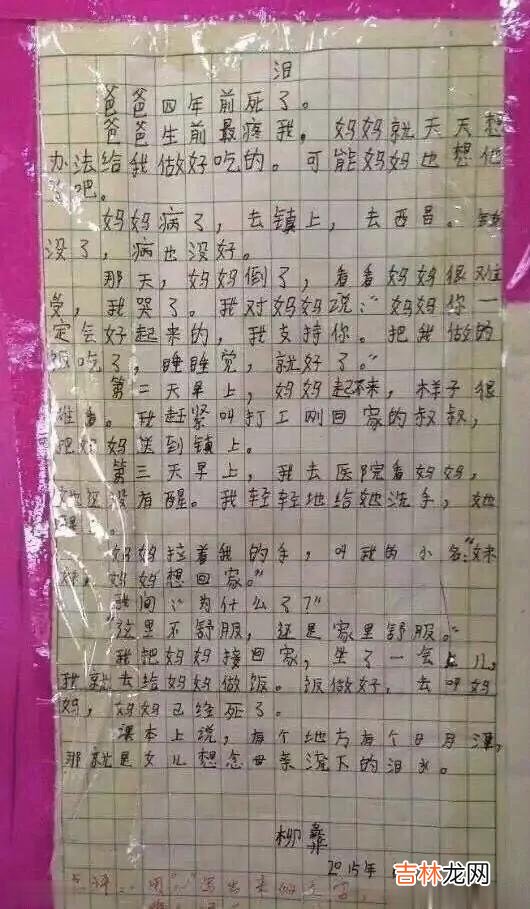 泪
爸爸四年前死了。
爸爸生前最疼我。妈妈就天天想
办法给我做好吃的。可能妈妈也想他
了吧。
妈妈病了，去镇上，去西昌。钱
没了，病也没好。
那天，妈妈倒了，看看妈妈很难
受，我哭了。我对妈妈说：“妈妈你一
定会好起来的，我支持你。把我做的
饭吃了，睡睡觉，就好了。”
第二天早上，妈妈起不来，样子很
难看。我赶紧叫打工刚回家的叔叔，
把妈妈送到镇上。
第三天早上，我去医院看妈妈，
她还没有醒。我轻轻地给她洗手，她
醒
妈妈拉着我的手，叫我的小名：“妹
妹，妈妈想回家。”
我问：“为什么了？”
“这里不舒服，还是家里舒服。”
我把妈妈接回家，坐了一会儿，
我就去给妈妈做饭。饭做好，去叫妈
妈，妈妈已经死了。
课本上说，有个地方有个日月潭，
那就是女儿想念母亲流下的泪水。
柳彝
2015年
点评：用“心”写出来的文字，
吉林龙网